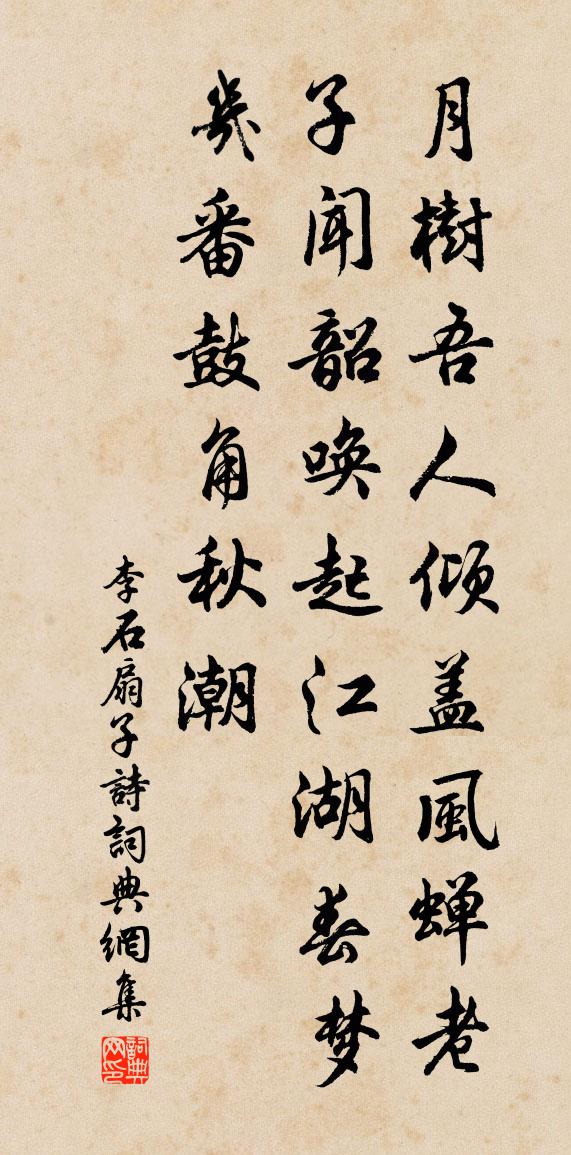 月樹吾人傾盖風蝉老
子聞韶唤起江湖春梦
幾番鼓角秋潮
李石扇子詩詞典網集
詞典网印